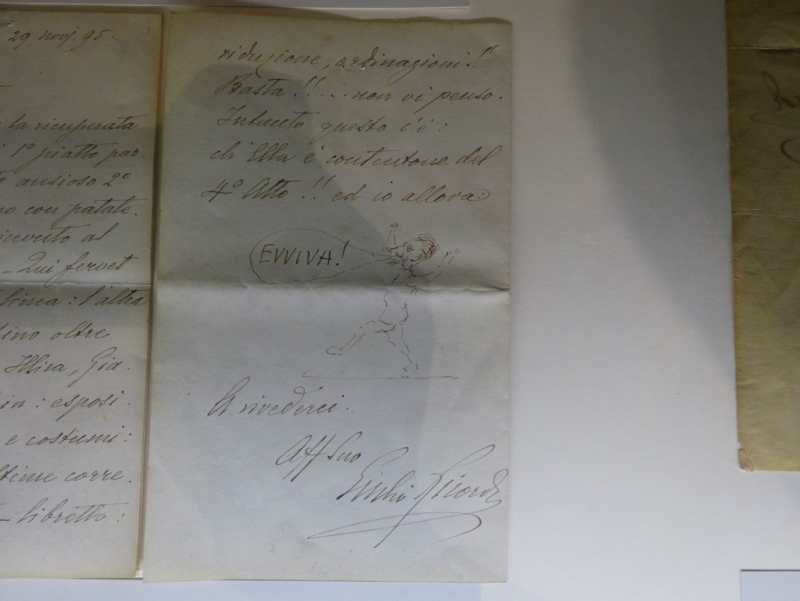 29 nov. 95.
la ricuperata
1º piatto par-
ansioso 2º
con patate.
al
- Qui fervet
lima: l'altra
oltre
Illica, Gia-
: esposi-
e costumi:
ultime corre-
- libretto:
riduzione, ordinazioni!!
Basta!!... non vi penso.
Intanto questo c'è:
ch'Ella è contentone del
4º Atto!! ed io allora:
EVVIVA!
A rivederci.
Aff Suo
Giulio Ricordi